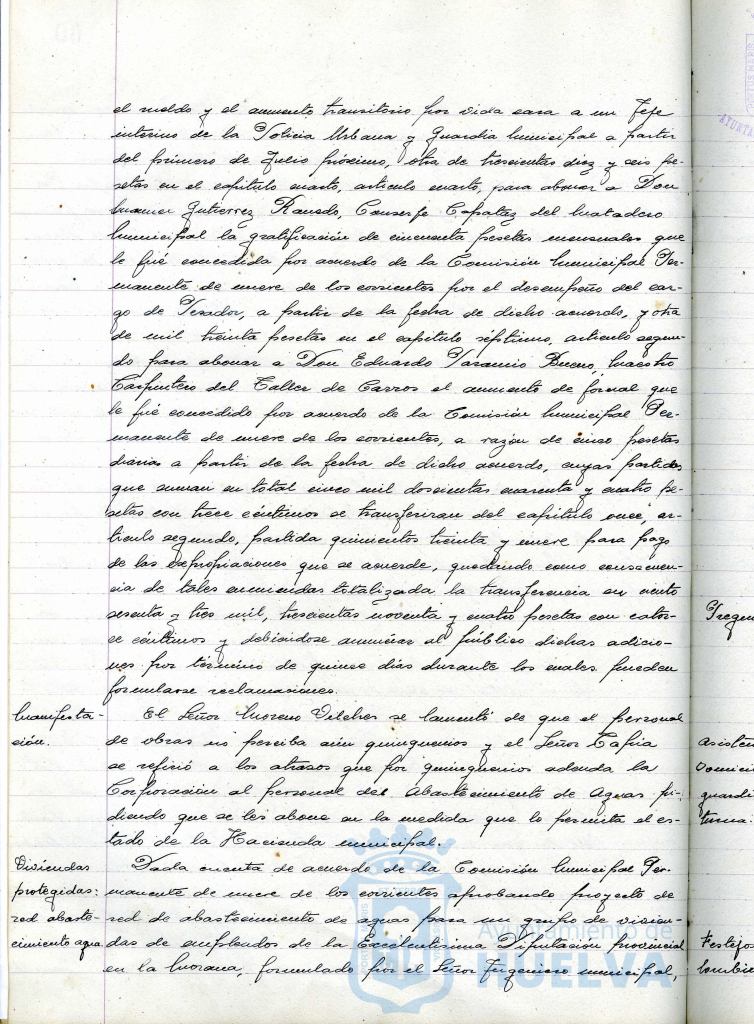 el sueldo y el aumento transitorio por vida cara a un Jefe
interino de la Policia Urbana y Guardia Municipal a partir
del primero de Julio próximo, otra de trescientas diez y seis pe-
setas en el capitulo cuarto, articulo cuarto, para abonar a Don
Manuel Gutierrez Ranedo, Conserje Capataz del Matadero
Municipal la gratificación de cincuenta pesetas mensuales que
le fué concedida por acuerdo de la Comisión Municipal Per-
manente de nueve de los corrientes por el desempeño del car-
go de Pesador, a partir de la fecha de dicho acuerdo, y otra
de mil treinta pesetas en el capitulo séptimo, articulo segun-
do para abonar a Don Eduardo Bueno, Maestro
Carpintero del Taller de Carros el aumento de jornal que
le fué concedido por acuerdo de la Comisión Municipal Per-
manente de nueve de los corrientes, a razón de cinco pesetas
diarias a partir de la fecha de dicho acuerdo, cuyas partidas
que suman en total cinco mil doscientas cuarenta y cuatro pe-
setas con trece céntimos se transferiran del capitulo once, ar-
ticulo segundo, partida quinientos treinta y nueve para pago
de las expropiaciones que se acuerde, quedando como consecuen-
cia de tales enmiendas totalizada la transferencia en ciento
sesenta y tres mil, trescientas noventa y cuatro pesetas con cator-
ce céntimos y debiéndose anunciar al público dichas adicio-
nes por término de quince días durante los cuales pueden
formularse reclamaciones.
Manifesta-
ción.
El Señor Moreno Vilches se lamentó de que el personal
de obras no perciba aún quinquenios y el Señor Tapia
se refirió a los atrasos que por quinquenios adeuda la
Corporación al personal del Abastecimiento de Aguas pi-
diendo que se les abone en la medida que lo permita el es-
tado de la Hacienda municipal.
Viviendas
protegidas:
red abaste-
cimiento agua
Dada cuenta de acuerdo de la Comisión Municipal Per-
manente de nueve de los corrientes aprobando proyecto de
red de abastecimiento de aguas para un grupo de vivien-
das de empleados de la Excelentisima Diputación provincial
en la Morana, formulado por el Señor Ingeniero municipal,
Ayuntamiento de
HUELVA